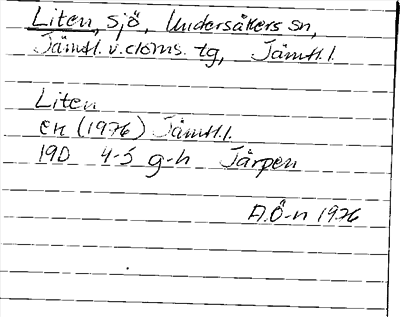 Liten, sjö, Undersåkers sn,
Jämtl. v. doms. tg, Jämtl. l.
Liten
ek (1976) Jämtl. l.
19D 4-5 g-h Järpen
A.Ö-n 1976